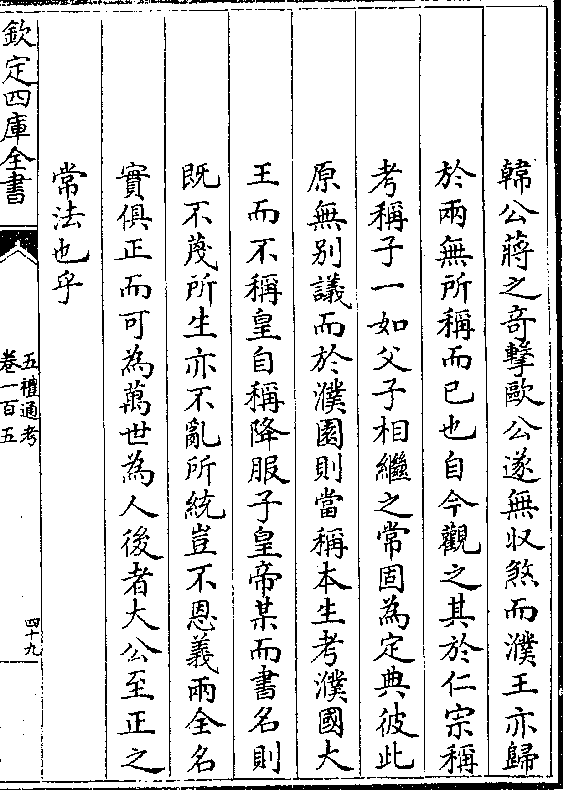 韓公蔣之奇擊歐公遂無収煞而濮王亦歸
於兩無所稱而已也自今觀之其於仁宗稱
考稱子一如父子相繼之常固為定典彼此
原無別議而於濮園則當稱本生考濮國大
王而不稱皇自稱降服子皇帝某而書名則
既不蔑所生亦不亂所統豈不恩義兩全名
實俱正而可為萬世為人後者大公至正之
常法也乎
欽定四庫全書
五禮通考
卷一百五
四十九